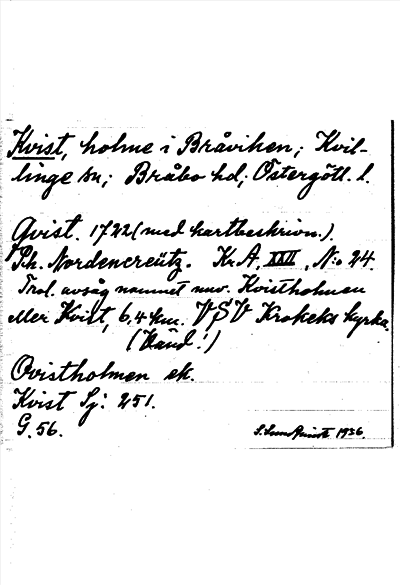 Kvist, holme i Bråviken; Kvil-
linge sn; Bråbo hd; Östergötl. l.
Qvist. 1722 (med kartbeskrivn.).
Ph. Nordencreutz. Kr.A. XXII, N:o 24.
Trol. avsåg namnet nuv. Kvistholmen
eller Kvist, 6,4 km. VSV Krokeks kyrka.
(Känd!)
Qvistholmen ek.
Kvist Sj: 251.
G. 56.
1936.